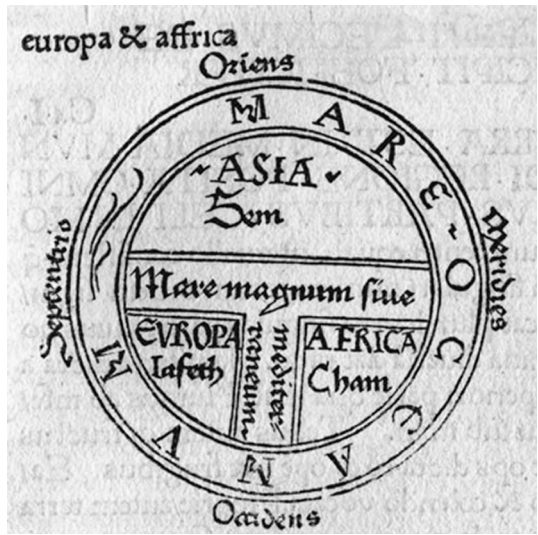 europa & affrica
Oriens
MARE OCEANVM
ASIA
Sem
Septentrio
Meridies
Mare magnum siue
mediter=
raneum.
EVROPA
Iafeth
AFRICA
Cham
Occidens